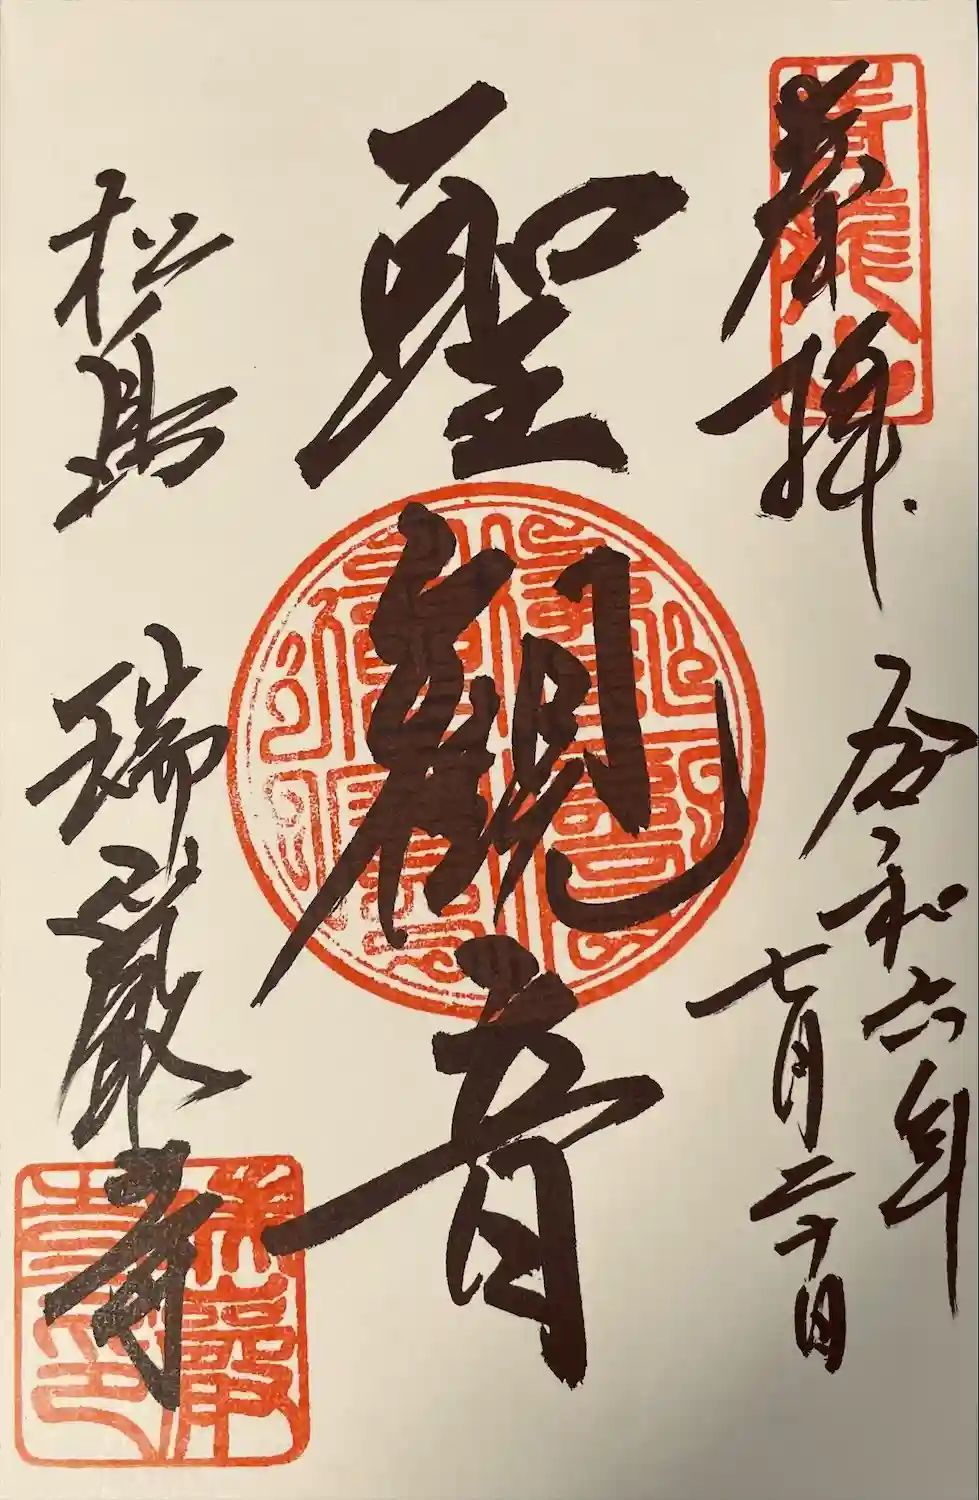 奉拝
令和六年
七月二十日
聖観音
松島
瑞巌寺